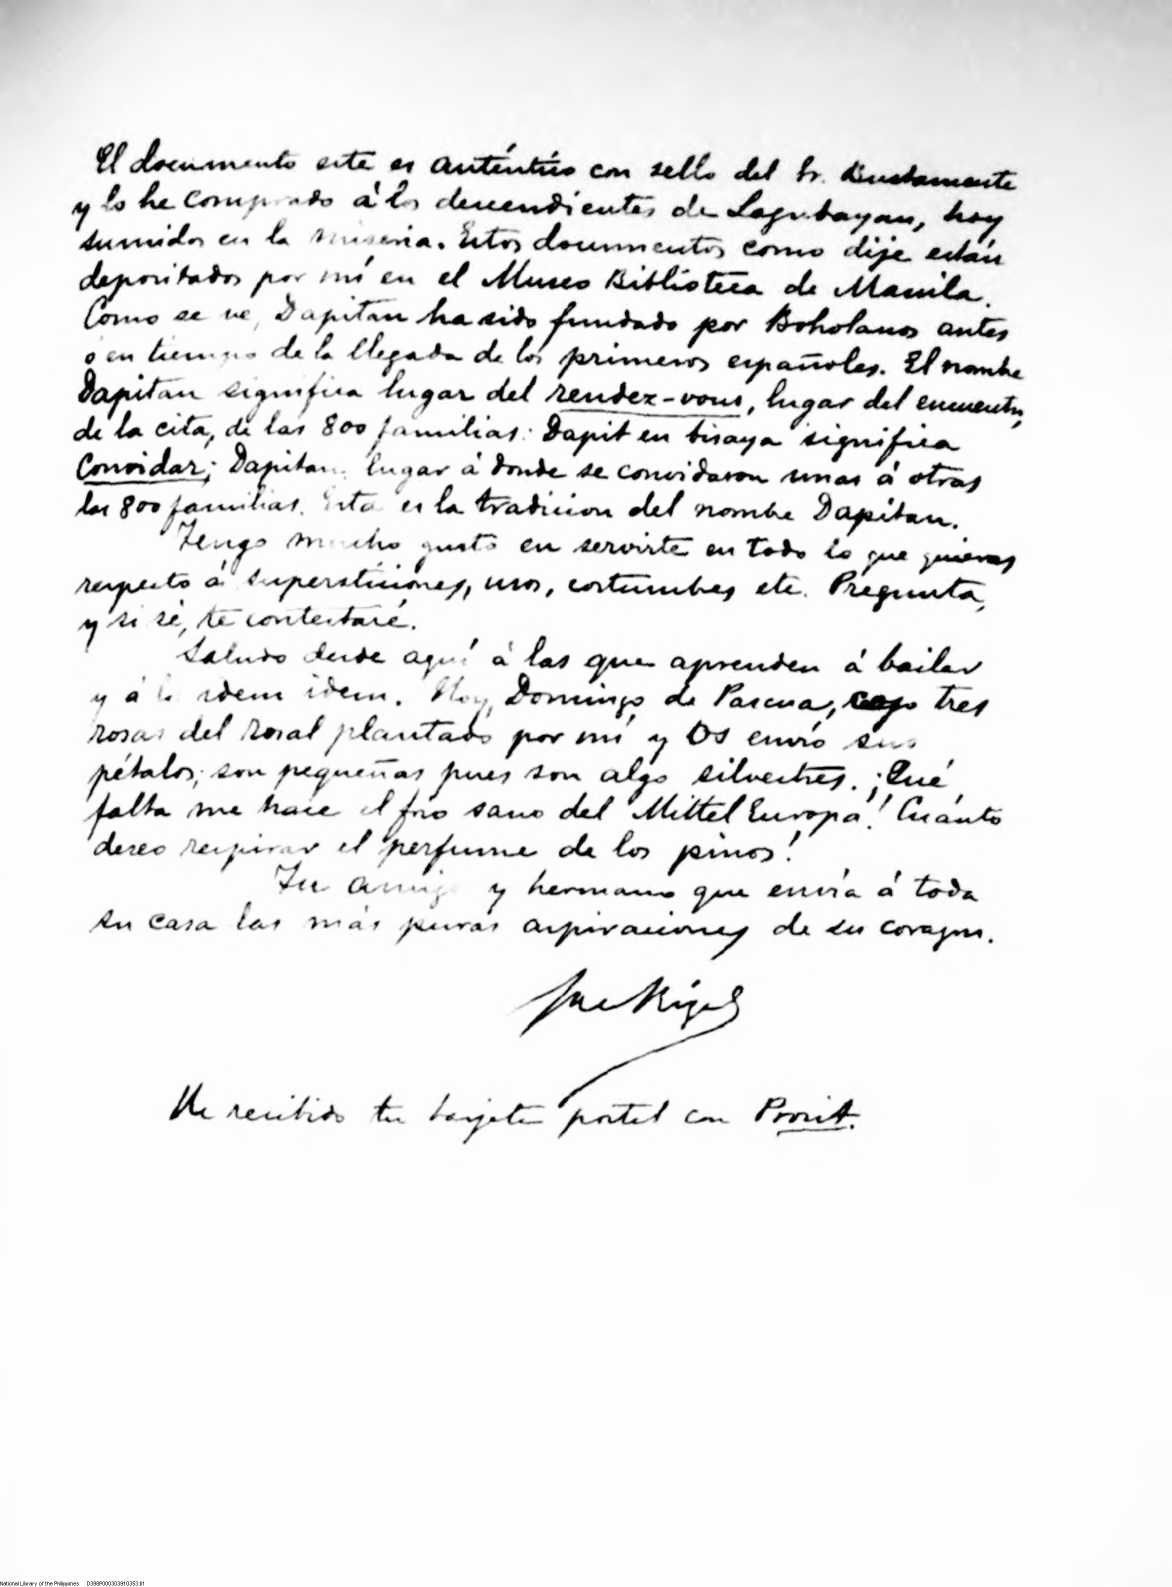 El documento este es auténtico con sello del Sr. Bustamante
y lo he comprado á los descendientes de Lagubayan, hoy
sumidos en la miseria. Estos documentos como dije están
depositados por mí en el Museo Biblioteca de Manila.
Como se ve, Dapitan ha sido fundado por Boholanos antes
ó en tiempo de la llegada de los primeros españoles. El nombre
Dapitan significa lugar del rendez-vous, lugar del encuentro,
de la cita, de las 800 familias: Dapit en bisaya significa
Convidar; Dapitan: lugar á donde se convidaron unas á otras
las 800 familias. Esta es la tradicion del nombre Dapitan.
Tengo mucho gusto en servirte en todo lo que quieras
respecto á supersticiones, usos, costumbres etc. Pregunta,
y si sé, te contestaré.
Saludo desde aquí á las que aprenden á bailar
y á la idem idem. Hoy, Domingo de Pascua, cojo tres
rosas del rosal plantado por mí y os envío sus
pétalos; son pequeñas pues son algo silvestres. ¡Qué
falta me hace el frío sano del Mittel Europa! Cuánto
deseo respirar el perfume de los pinos!
Tu amigo y hermano que envía á toda
su casa las más puras aspiraciones de su corazon.
José Rizal
He recibido tu tarjeta postal con Prosit.
National Library of the Philippines